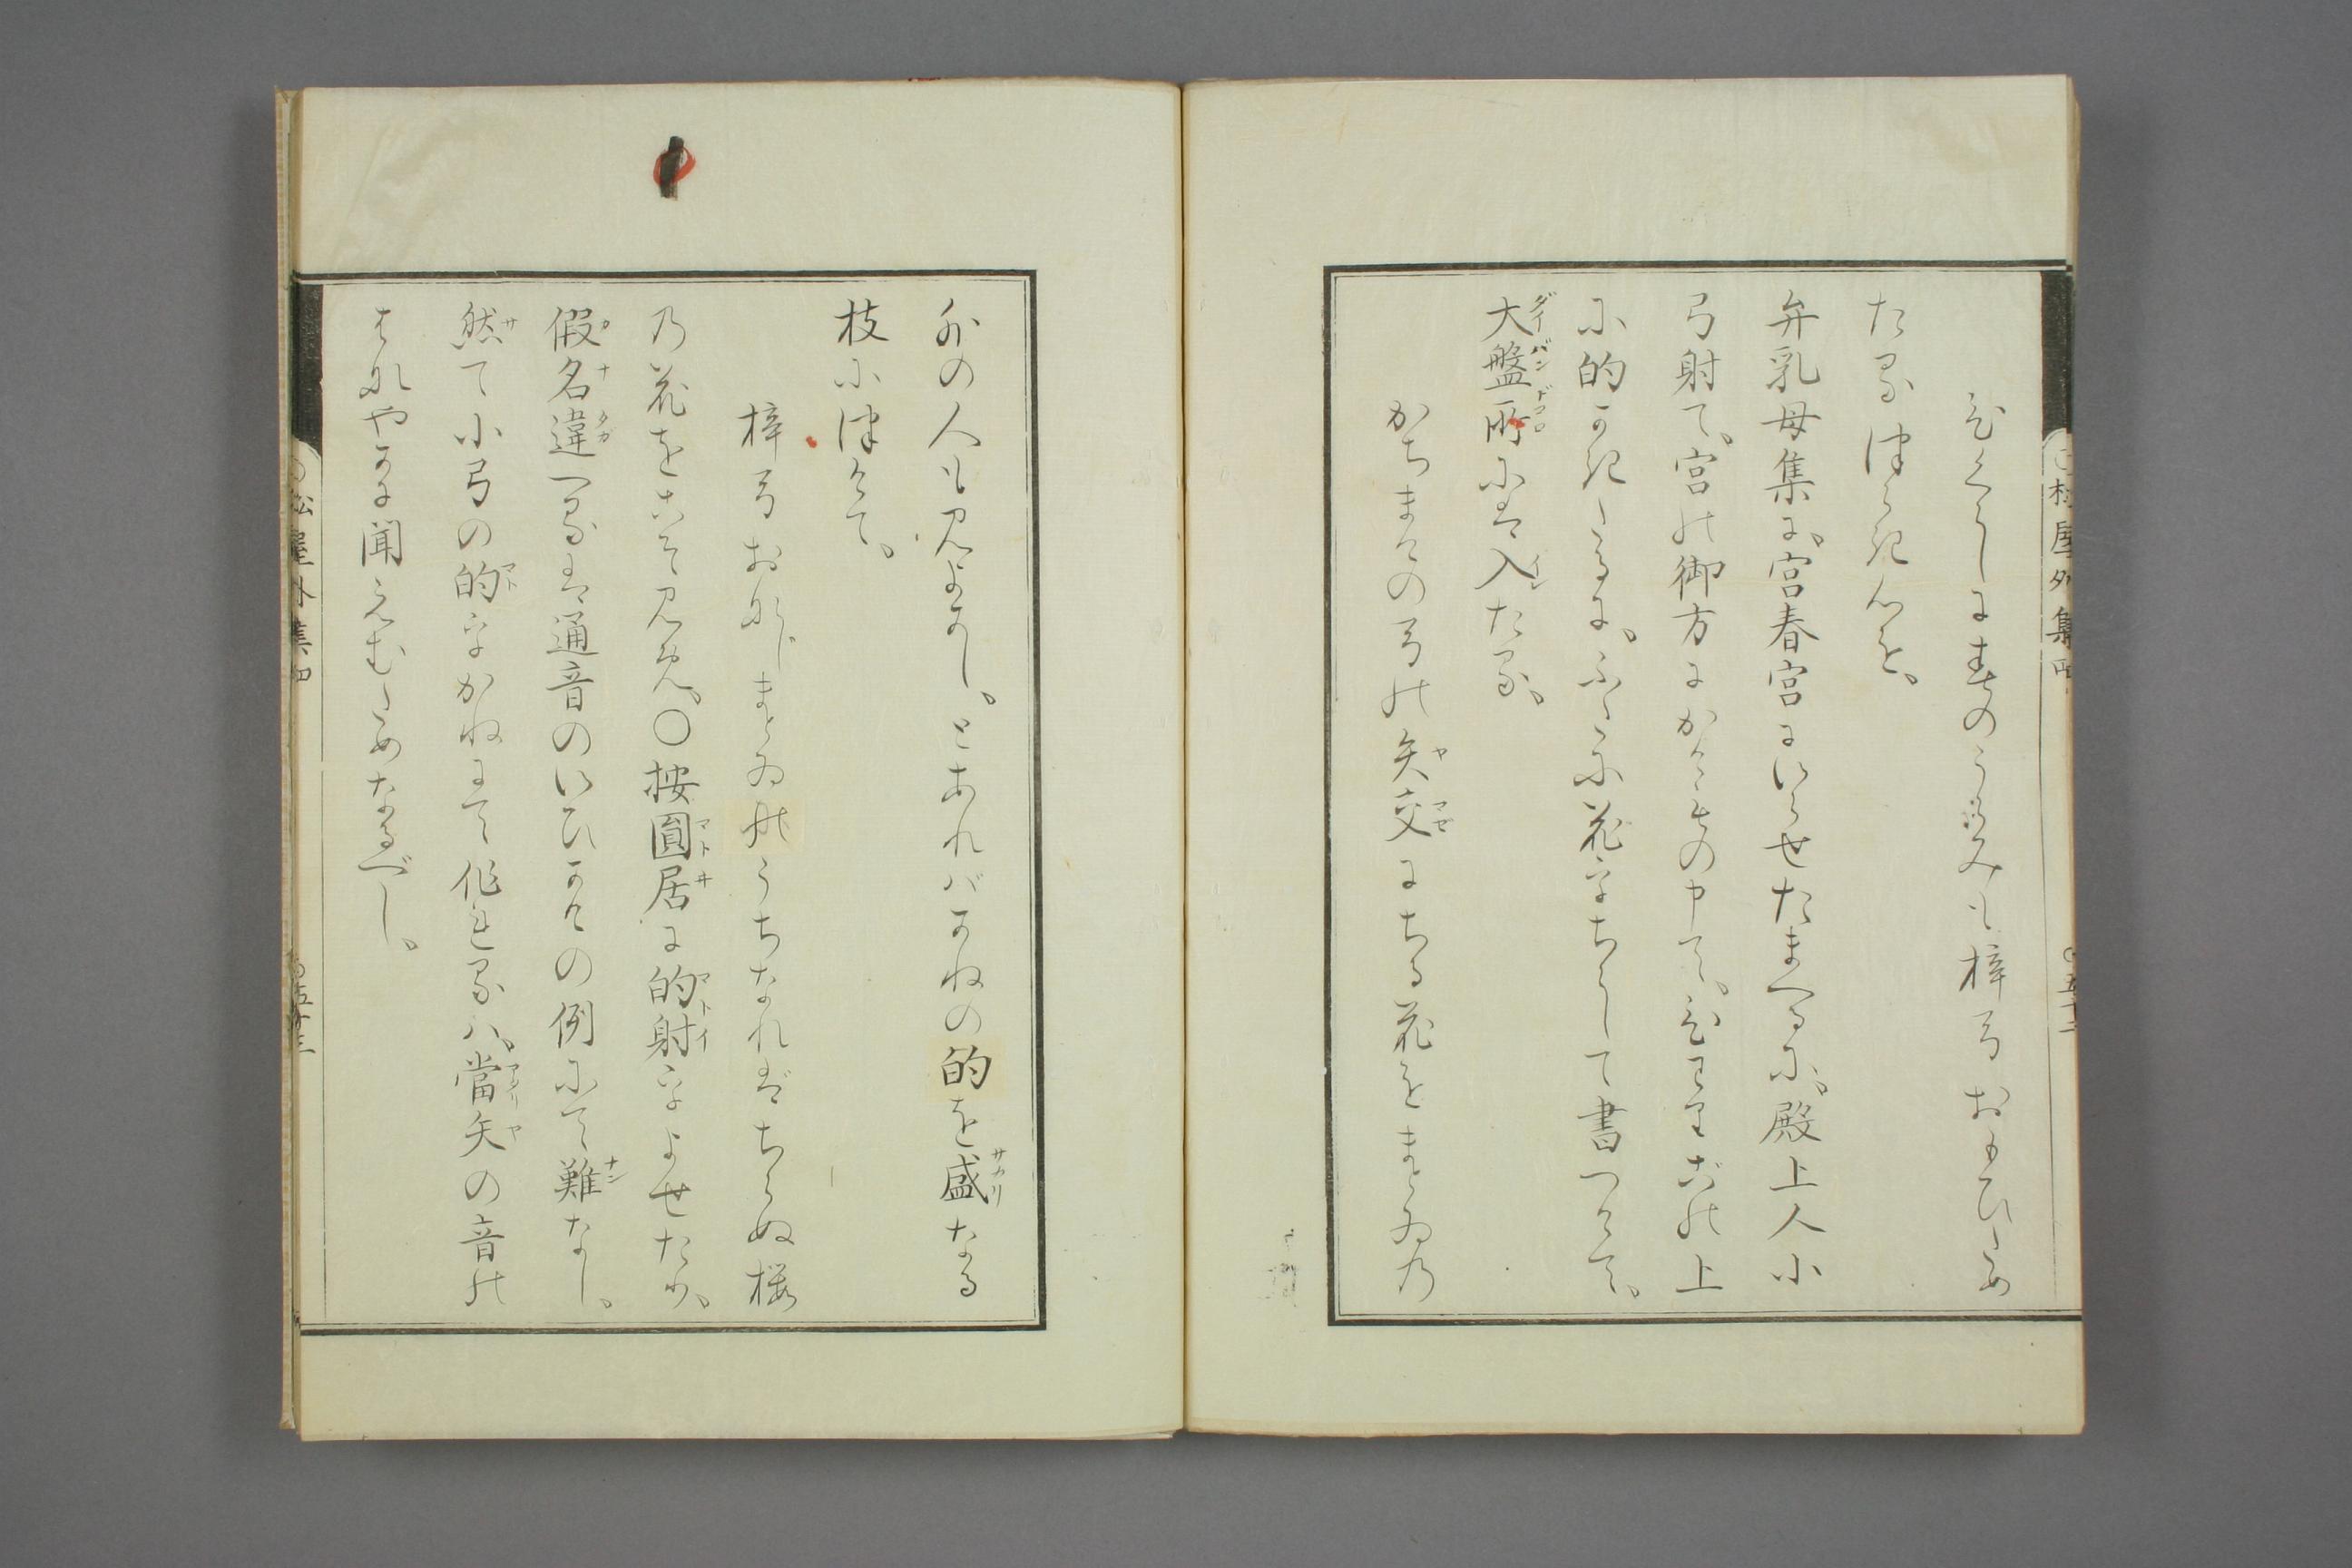 ひくらしに春のうらみも梓弓おもひしめ
たる津らき心を、
弁乳母集に、宮春宮にいらせたまへるに、殿上人小
弓射て、宮の御方にかけものゝ申て、ひわりごの上
に的かきしたるに、ふくに花をちらして書つけて、
大盤所には入たる、
かちまけの弓の矢交にちる花をまとゐの
外の人も見よかし、とあれバかねの的を盛なる
枝に津けて、
梓弓おなじまとゐのうちなればちらぬ桜
の花をこそ見め、〇按圓居に的射をよせたり、
假名違へるは通音のいひかけの例にて難なし、
然て小弓の的をかねにて作れるハ、當矢の音の
はなやかに聞えむためなるべし、
松屋外集四
五十二
松屋外集四
五十三